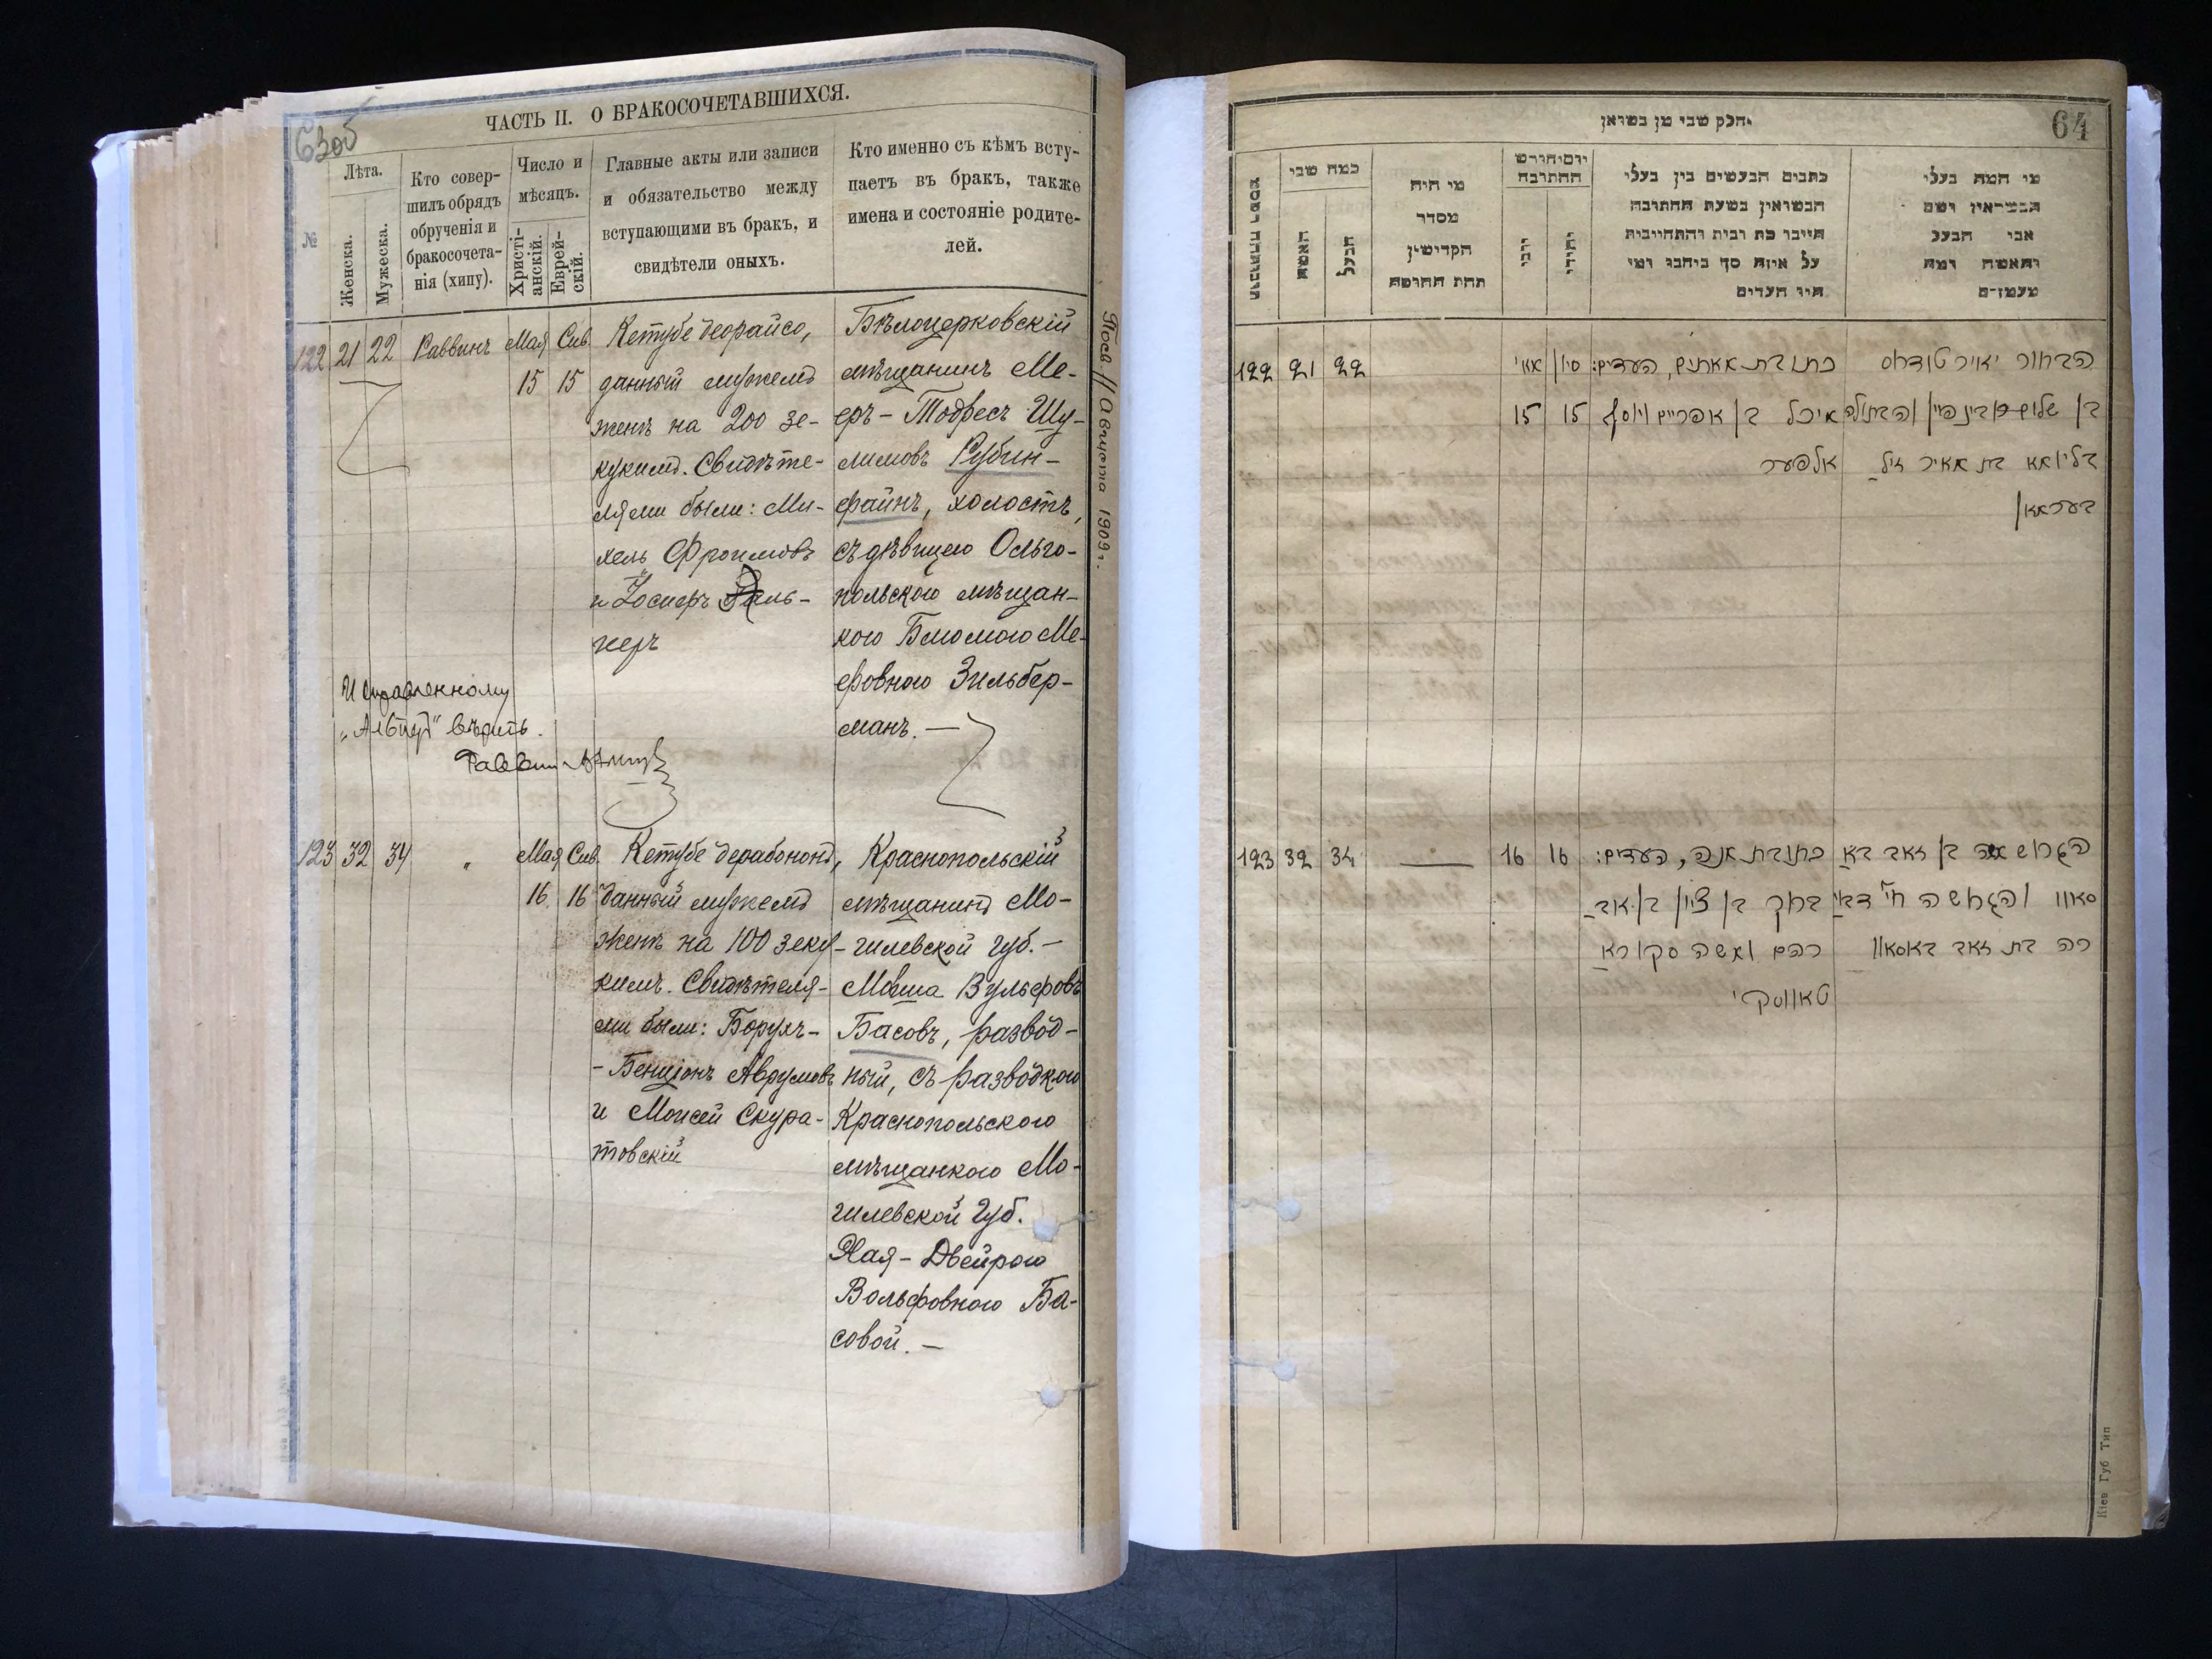 63об
ЧАСТЬ II. О БРАКОСОЧЕТАВШИХСЯ.
№
Лѣта.
Женска.
Мужеска.
Кто совер-
шилъ обрядъ
обрученія и
бракосочета-
нія (хипу).
Число и
мѣсяцъ.
Христі-
анскій.
Еврей-
скій.
Главные акты или записи
и обязательство между
вступающими въ бракъ, и
свидѣтели оныхъ.
Кто именно съ кѣмъ всту-
паетъ въ бракъ, также
имена и состояніе родите-
лей.
122 21 22 Раввинъ Мая 15 Сив. 15
Кетубе деорайсо,
данный мужемъ
женѣ на 200 зе-
кукимъ. Свидѣте-
лями были: Ми-
хель Фроимовъ
и Іосифъ
Бѣлоцерковскій
мѣщанинъ Ме-
еръ-Тодресъ Шу-
лимовъ Рубин-
файнъ, холостъ,
съ дѣвицею Ольго-
польскою мѣщан-
кою Блюмою Ме-
еровною Зильбер-
манъ. —
Исправленному
„Альпер" вѣрить.
Раввинъ
Посв 11 Августа 1909 г.
123 32 34 „ Мая 16 Сив. 16
Кетубе дерабононъ,
данный мужемъ
женѣ на 100 зеку-
кимъ. Свидѣтеля-
ми были: Борухъ-
-Бенціонъ Аврумовъ
и Моисей Скура-
товскій
Краснопольскій
мѣщанинъ Мо-
гилевской губ. —
Мовша Вульфовъ
Басовъ, развод-
ный, съ разводкою
Краснопольского
мѣщанкою Мо-
гилевской губ.
Хая-Двейрою
Вольфовною Ба-
совой. —
64
חלק שני מן נשואן
כמה שני
האשה
הבעל
מי היה
מסדר
הקדישין
תחת החופה
יום וחודש
החתונה
נוצרי
יהודי
כתבים הנעשים בין בעלי
הנשואין בשעת החתונה
מי המה בעלי
הנשואין ושם
אבי הבעל
והאשה ומה
מעמדם
122 21 22 מאי 15 סיון 15
כתובת אתים, העדים:
מיכל בן אפרים ויוסף
אלפער
הבחור מאיר טודרוס
בן שלום רובינפיין והבתולה
בלומא בת מאיר זיל
בערמאן
123 32 34 — 16 16
העדים:
ברוך בן ציון בן אב
רהם ומשה סקורא
טאווסקי
הגרוש משה בן זאב בא
סאוו והגרושה חי' דבו
רה בת זאב באסאוו
Кіев Губ Тип